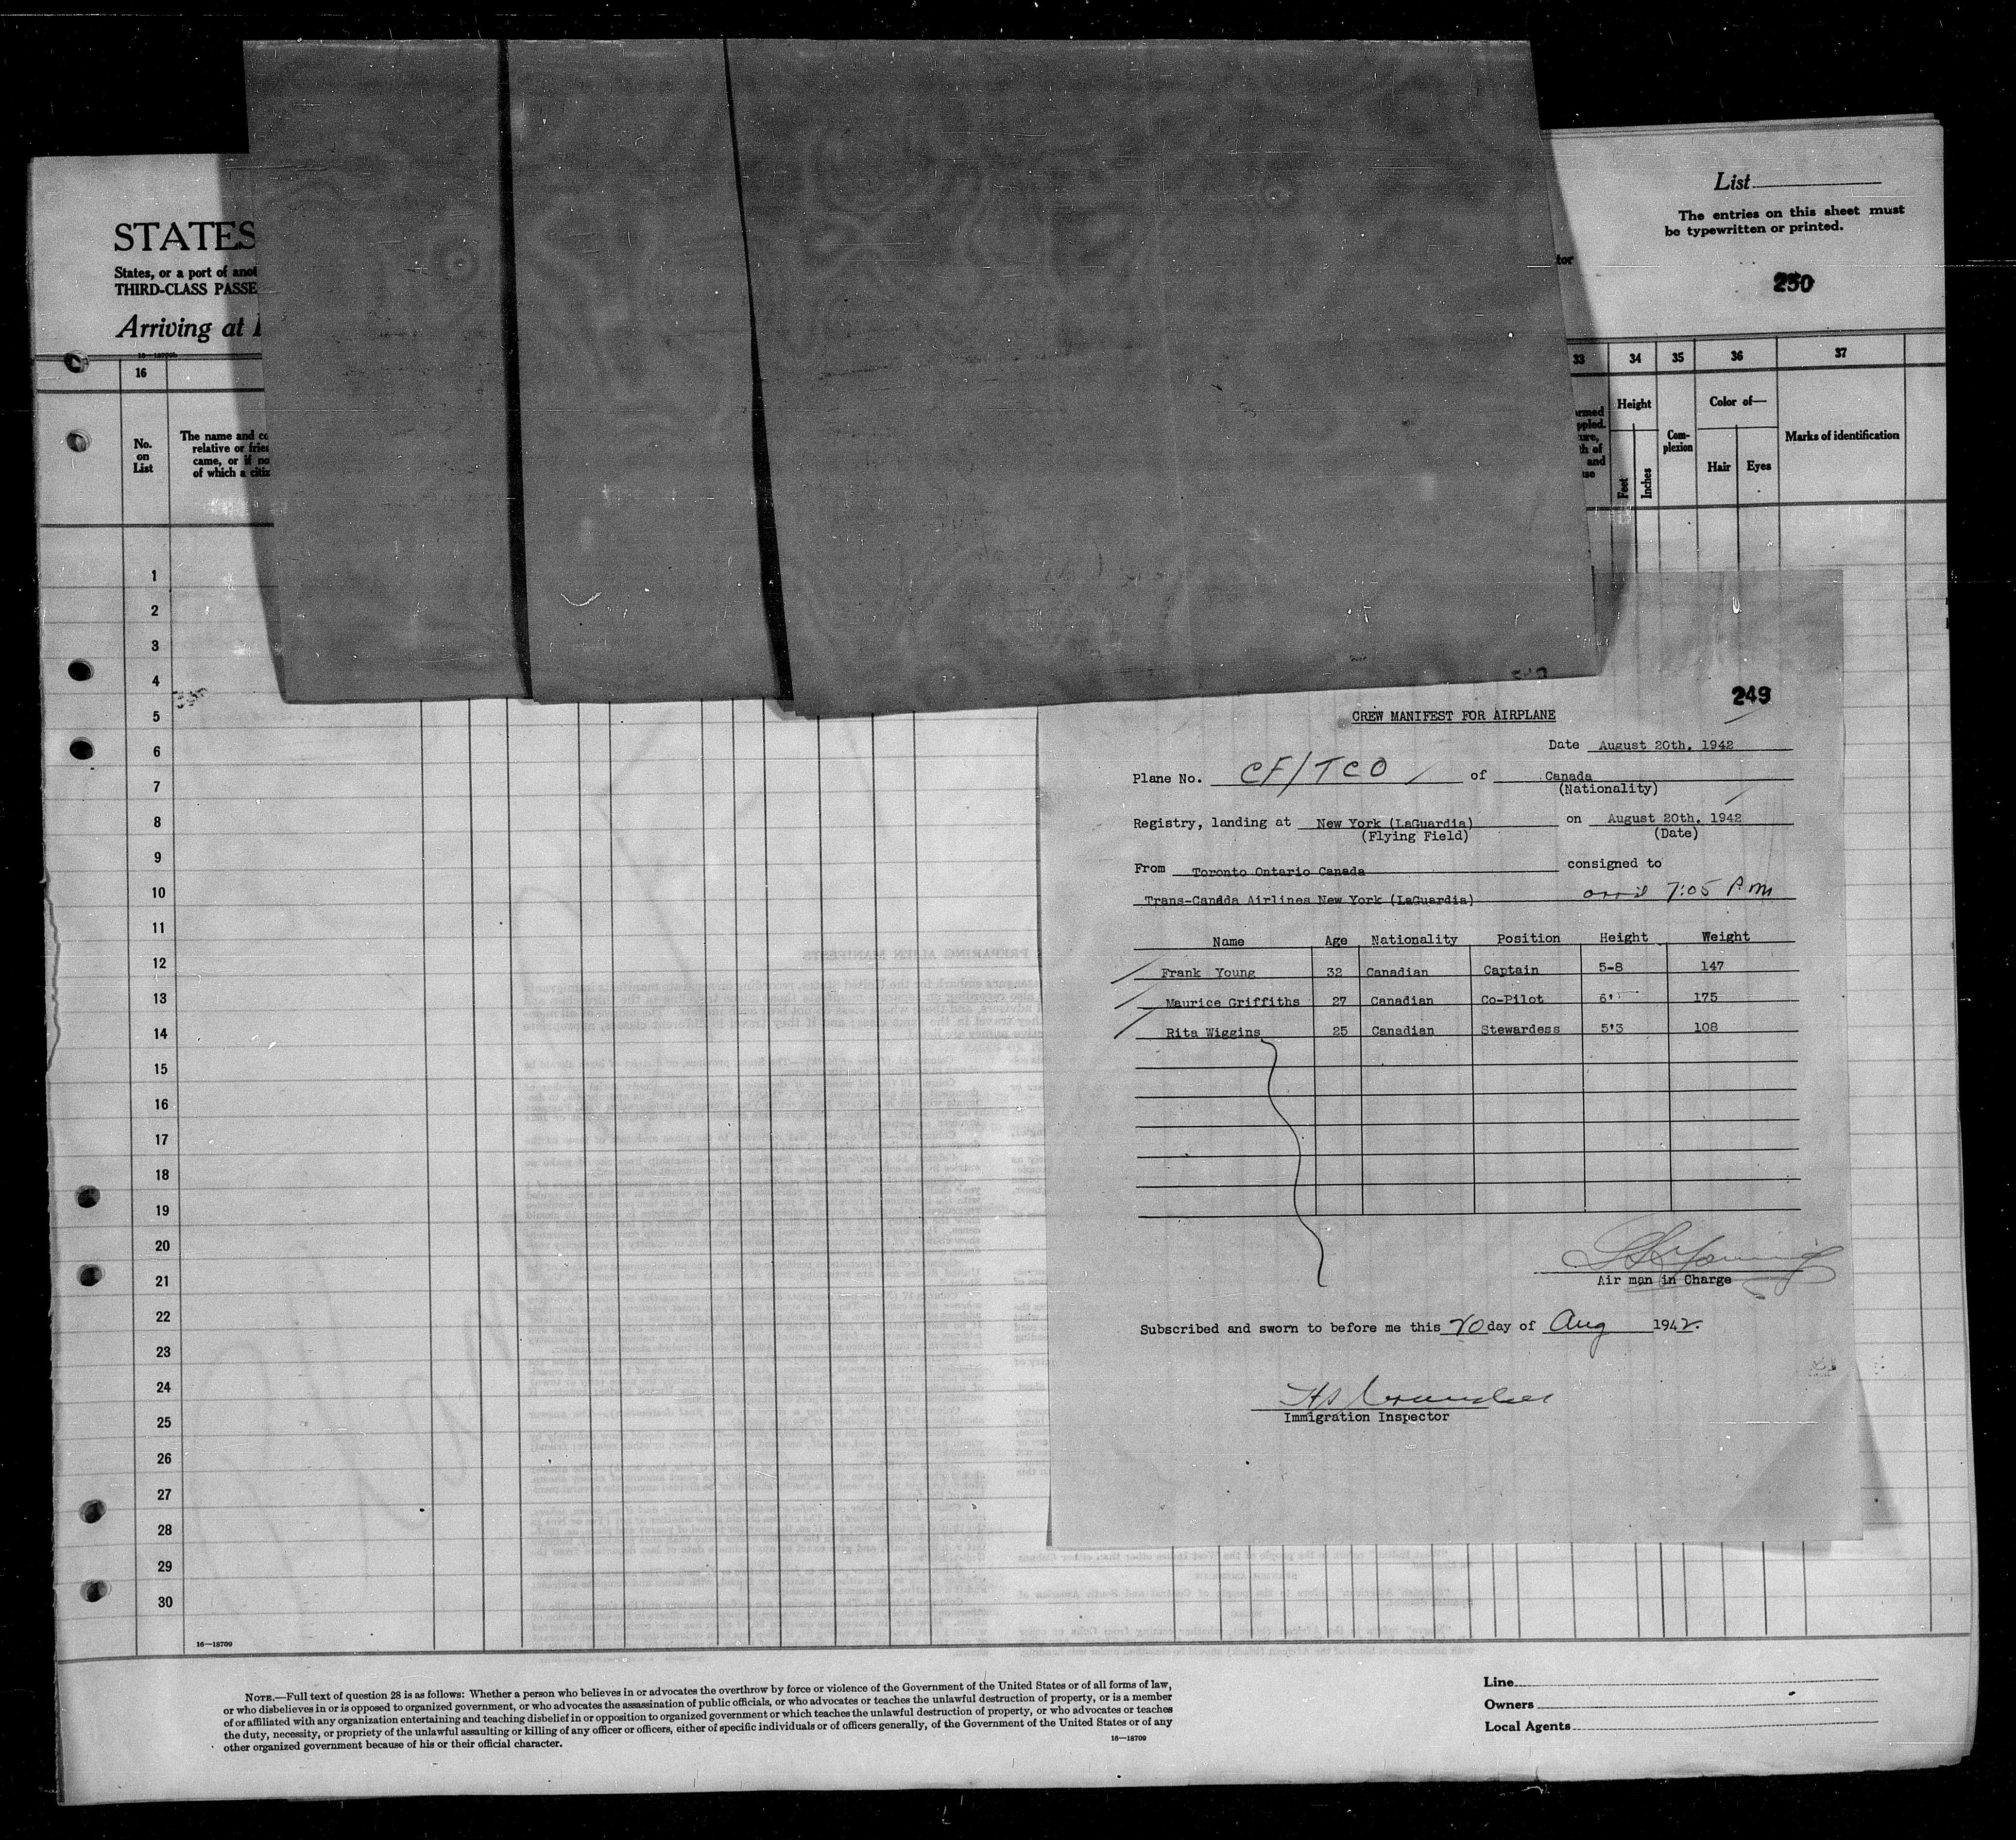 STATES
States, or a port of
THIRD-CLASS
Arriving at
List
The entries on this sheet must
be typewritten or printed.
250
16
33
34
35
36
37
No.
on
List
The name and
relative or
came, or if
of which a
Height
Feet
Inches
Com-
plexion
Color of—
Hair
Eyes
Marks of identification
1
2
3
4
5
6
7
8
9
10
11
12
13
14
15
16
17
18
19
20
21
22
23
24
25
26
27
28
29
30
16—18709
249
CREW MANIFEST FOR AIRPLANE
Date August 20th, 1942
Plane No. CF/TCO of Canada
(Nationality)
Registry, landing at New York (LaGuardia) on August 20th, 1942
(Flying Field) (Date)
From Toronto Ontario Canada consigned to
Trans-Canada Airlines New York (LaGuardia) 7:05 P.m
Name Age Nationality Position Height Weight
Frank Young 32 Canadian Captain 5-8 147
Maurice Griffiths 27 Canadian Co-Pilot 6' 175
Rita Wiggins 25 Canadian Stewardess 5'3 108
Air man in Charge
Subscribed and sworn to before me this 20 day of Aug 1942.
Immigration Inspector
NOTE.—Full text of question 28 is as follows: Whether a person who believes in or advocates the overthrow by force or violence of the Government of the United States or of all forms of law,
or who disbelieves in or is opposed to organized government, or who advocates the assassination of public officials, or who advocates or teaches the unlawful destruction of property, or is a member
of or affiliated with any organization entertaining and teaching disbelief in or opposition to organized government or which teaches the unlawful destruction of property, or who advocates or teaches
the duty, necessity, or propriety of the unlawful assaulting or killing of any officer or officers, either of specific individuals or of officers generally, of the Government of the United States or of any
other organized government because of his or their official character.
16—18709
Line
Owners
Local Agents